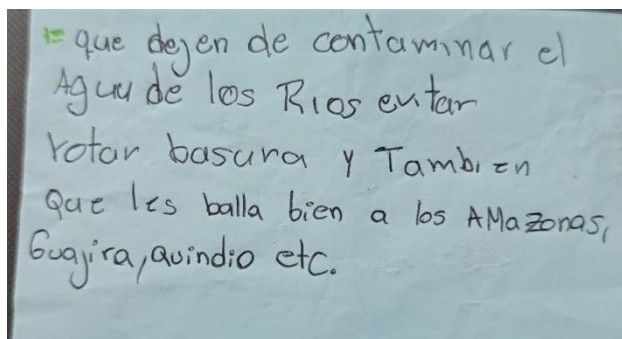 1= que dejen de contaminar el
Agua de los Rios evitar
rotar basura y Tambien
Que les balla bien a los AMazonas,
Guajira, Quindio etc.